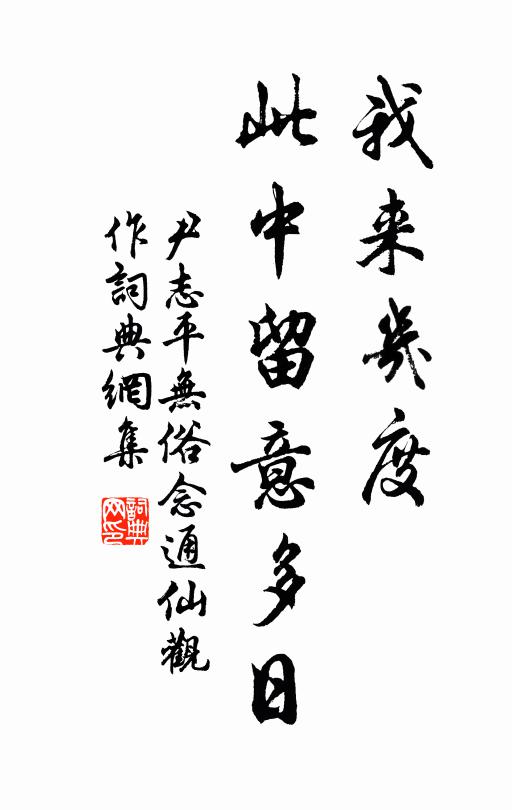 我来幾度
此中留意多日
尹志平無俗念通仙觀
作詞典網集
詞典
网印